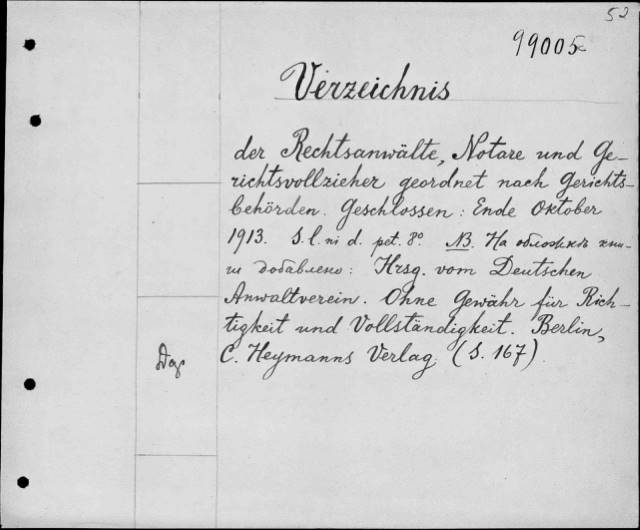 52
99005
Verzeichnis
der Rechtsanwälte, Notare und Ge-
richtsvollzieher geordnet nach Gerichts-
behörden. Geschlossen: Ende Oktober
1913. S. l. ni d. pet. 8º. NB. На обложкѣ кни-
ги добавлено: Hrsg. vom Deutschen
Anwaltverein. Ohne Gewähr für Rich-
tigkeit und Vollständigkeit. Berlin,
C. Heymanns Verlag. (S. 167)